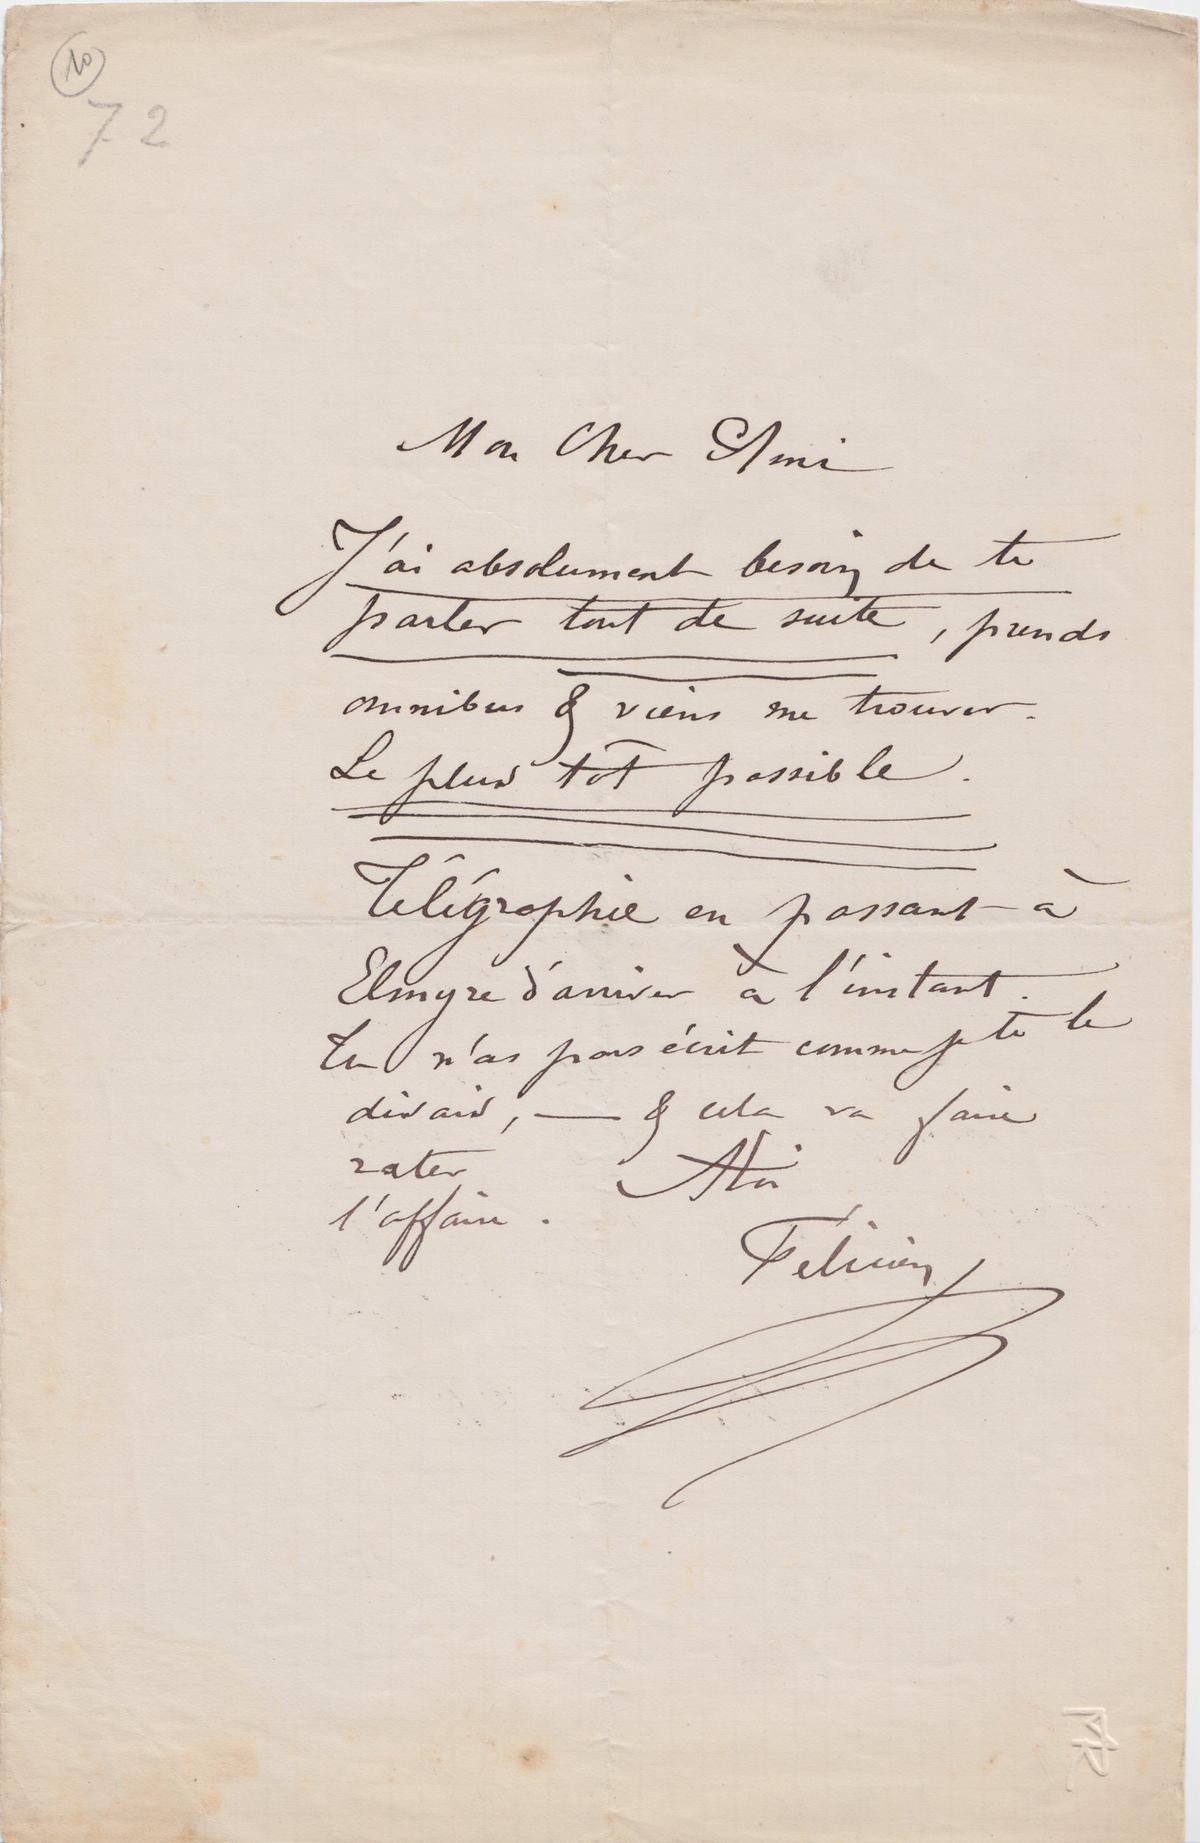 10
72
Mon Cher Ami
J'ai absolument besoin de te
parler tout de suite, prends
omnibus & viens me trouver.
Le plus tôt possible.
Télégraphie en passant à
Elmyre d'arriver à l'instant.
Tu n'as pas écrit comme je te le
disais, — & cela va faire
rater
l'affaire. A toi
Félicien